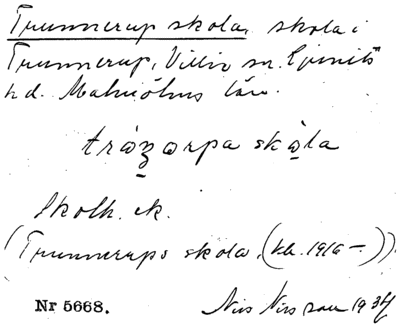 Trunnerup skola, skola i
Trunnerup, Villie sn. Ljunits
hd. Malmöhus län.
skåla
Skolk. ek.
(Trunnerups skola, (kh. 1916–)).
Nr 5668.
Nils Nilsson 1934